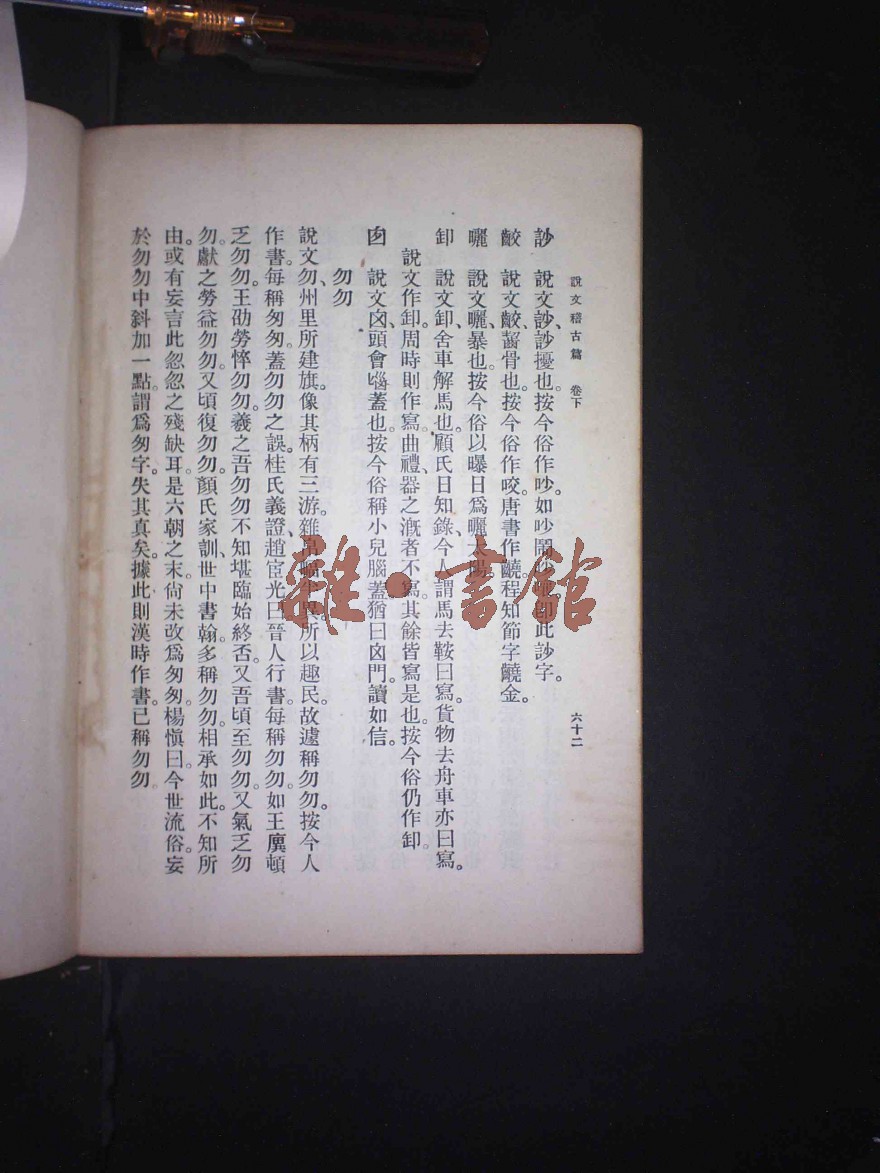 說文稽古篇　卷下　六十二
訬　說文、訬、訬擾也。按今俗作吵。如吵鬧、卽此訬字。
齩　說文、齩、齧骨也。按今俗作咬。唐書作齩。程知節字齩金。
曬　說文、曬、暴也。按今俗以曝日爲曬太陽。
卸　說文、卸、舍車解馬也。顧氏日知錄、今人謂馬去鞍曰寫。貨物去舟車亦曰寫。
說文作卸。周時則作寫。曲禮、器之漑者不寫。其餘皆寫是也。按今俗仍作卸。
囟　說文、囟、頭會匘蓋也。按今俗稱小兒腦蓋猶曰囟門。讀如信。
勿勿
說文、勿、州里所建旗。像其柄有三游。雜帛幅半異。所以趣民。故遽稱勿勿。按今人
作書。每稱匆匆。蓋勿勿之誤。桂氏義證、趙宧光曰、晉人行書。每稱勿勿。如王廙頓
乏勿勿。王劭勞悴勿勿。羲之吾勿勿不知堪臨始終否。又吾頃至勿勿。又氣乏勿
勿。獻之勞益勿勿。又頃復勿勿。顏氏家訓、世中書翰。多稱勿勿。相承如此。不知所
由。或有妄言此忽忽之殘缺耳。是六朝之末。尙未改爲匆匆。楊愼曰、今世流俗。妄
於勿勿中斜加一點。謂爲匆字。失其真矣。據此則漢時作書。已稱勿勿。
雜·書館